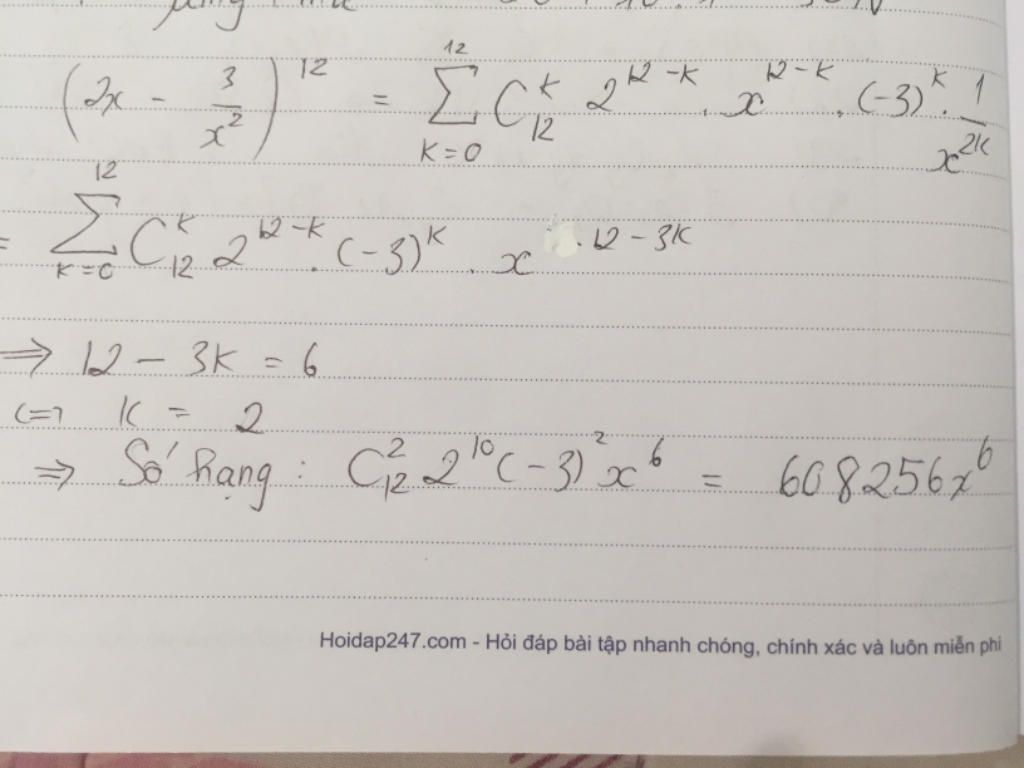 (2x - 3/x²)¹² = ∑_{k=0}^{12} C_{12}^{k} 2^{12-k} . x^{12-k} . (-3)^{k} . 1/x^{2k}
= ∑_{k=0}^{12} C_{12}^{k} 2^{12-k} . (-3)^{k} . x^{12-3k}
⇒ 12 - 3k = 6
<=> k = 2
⇒ Số hạng : C_{12}^{2} 2^{10} (-3)^{2} x^{6} = 608256x^{6}
Hoidap247.com - Hỏi đáp bài tập nhanh chóng, chính xác và luôn miễn phí